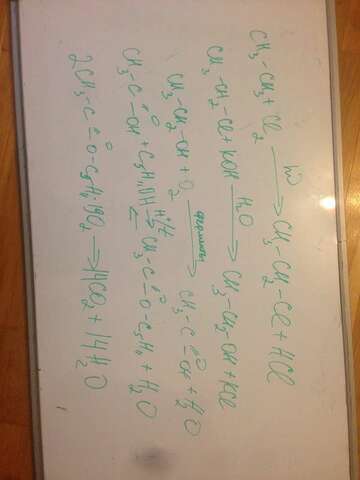 CH₃-CH₃ + Cl₂ —hν→ CH₃-CH₂-Cl + HCl
CH₃-CH₂-Cl + KOH —H₂O→ CH₃-CH₂-OH + KCl
CH₃-CH₂-OH + O₂ → CH₃-C=O-OH + H₂O
CH₃-C=O-OH + C₅H₁₁OH ⇄ H⁺/t CH₃-C=O-O-C₅H₁₁ + H₂O
2CH₃-C=O-O-C₅H₁₁ 19O₂ → 14CO₂ + 14H₂O